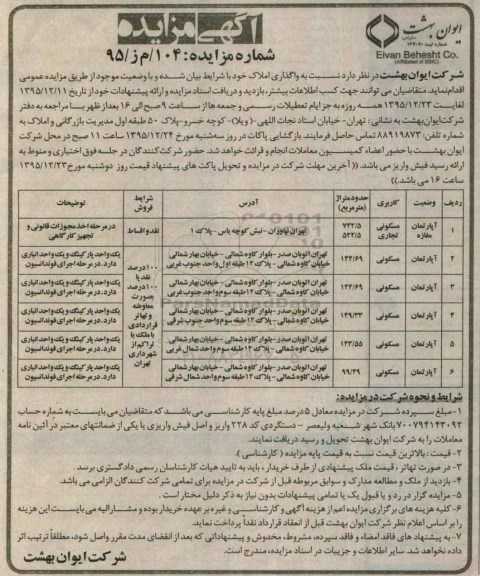 ایوان بهشت
(سهامی خاص)
شماره ثبت ۱۶۴۰۷۰
Eivan Behesht Co.
(Affiliated of SSIC)
آگهی مزایده
شماره مزایده: ۱۰۴/م ز/۹۵
شرکت ایوان بهشت در نظر دارد نسبت به واگذاری املاک خود با شرایط بیان شده و با وضعیت موجود از طریق مزایده عمومی
اقدام نماید. متقاضیان می توانند جهت کسب اطلاعات بیشتر، بازدید و دریافت اسناد مزایده و ارائه پیشنهادات خود از تاریخ ۱۳۹۵/۱۲/۱۱
لغایت ۱۳۹۵/۱۲/۲۳ همه روزه به جز ایام تعطیلات رسمی و جمعه ها از ساعت ۹ صبح الی ۱۶ بعد از ظهر با مراجعه به دفتر
شرکت ایوان بهشت به نشانی: تهران- خیابان استاد نجات اللهی-( ویلا)- کوچه خسرو-پلاک ۵۰ طبقه اول مدیریت بازرگانی و املاک به
شماره تلفن: ۸۸۹۱۹۸۷۳ تماس حاصل فرمایند. بازگشایی پاکات در روز سه شنبه مورخ ۱۳۹۵/۱۲/۲۴ ساعت ۱۱ صبح در محل شرکت
ایوان بهشت با حضور اعضاء کمیسیون معاملات انجام و قرائت خواهد شد. حضور شرکت کنندگان در جلسه فوق اختیاری و منوط به
ارائه رسید فیش واریز می باشد. (( آخرین مهلت شرکت در مزایده و تحویل پاکت های پیشنهاد قیمت روز دوشنبه مورخ ۱۳۹۵/۱۲/۲۳
ساعت ۱۶ می باشد.))
ردیف وضعیت کاربری حدود متراژ (متر مربع) آدرس شرایط فروش توضیحات
۱ آپارتمان مغازه مسکونی تجاری ۷۴۲/۵ ۵۲۲/۵ تهران نیاوران - نبش کوچه یاس- پلاک ۱ نقد و اقساط در مرحله اخذ مجوزات قانونی و تجهیز کارگاهی
۲ آپارتمان مسکونی ۱۴۴/۶۹ تهران اتوبان صدر -بلوار کاوه شمالی -خیابان بهار شمالی خیابان کاوه شمالی- پلاک ۱۲ طبقه اول واحد جنوب غربی یک واحد پارکینگ و یک واحد انباری دارد. در مرحله اجرای فونداسیون
۳ آپارتمان مسکونی ۱۴۴/۶۹ تهران اتوبان صدر -بلوار کاوه شمالی -خیابان بهار شمالی خیابان کاوه شمالی- پلاک ۱۲ طبقه سوم واحد جنوب غربی یک واحد پارکینگ و یک واحد انباری دارد. در مرحله اجرای فونداسیون
۴ آپارتمان مسکونی ۱۴۹/۳۳ تهران اتوبان صدر -بلوار کاوه شمالی -خیابان بهار شمالی خیابان کاوه شمالی- پلاک ۱۲ طبقه سوم واحد جنوب شرقی یک واحد پارکینگ و یک واحد انباری دارد. در مرحله اجرای فونداسیون
۵ آپارتمان مسکونی ۱۴۳/۵۵ تهران اتوبان صدر -بلوار کاوه شمالی -خیابان بهار شمالی خیابان کاوه شمالی- پلاک ۱۲ طبقه سوم واحد شمال غربی یک واحد پارکینگ و یک واحد انباری دارد. در مرحله اجرای فونداسیون
۶ آپارتمان مسکونی ۹۹/۴۹ تهران اتوبان صدر -بلوار کاوه شمالی -خیابان بهار شمالی خیابان کاوه شمالی- پلاک ۱۲ طبقه سوم واحد شمال شرقی یک واحد پارکینگ و یک واحد انباری دارد. در مرحله اجرای فونداسیون
۱۰۰ درصد
نقد یا
۱۰۰ درصد
بصورت
معاوضه
و تهاتر
قراردادی
با ملک یا
تراکم از
شهرداری
تهران
شرایط و نحوه شرکت در مزایده:
۱- مبلغ سپرده شرکت در مزایده معادل ۵ درصد مبلغ پایه کارشناسی می باشد که متقاضیان می بایست به شماره حساب
۷۰۰۷۹۴۱۴۳۰۹۲ بانک شهر شعبه ولیعصر - دستگردی کد ۲۲۸ واریز و اصل فیش واریزی یا یکی از ضمانتهای معتبر در آئین نامه
معاملات را به شرکت ایوان بهشت تحویل و رسید دریافت نمایند.
۲- قیمت : بالاترین قیمت نسبت به قیمت پایه مزایده ( کارشناسی ).
۳- در صورت تهاتر ، قیمت ملک پیشنهادی از طرف خریدار ، باید به تایید هیات کارشناسان رسمی دادگستری برسد .
۴- بازدید از ملک و مطالعه مدارک و سوابق مربوطه قبل از شرکت در مزایده برای تمامی شرکت کنندگان الزامی می باشد.
۵- مزایده گزار در رد و یا قبول یک یا تمامی پیشنهادات بدون نیاز به ذکر دلیل مختار است .
۶- کلیه هزینه های برگزاری مزایده اعم از هزینه آگهی و کارشناسی و غیره بر عهده خریدار بوده و مشارالیه می بایست این هزینه
را بر اساس اعلام نظر شرکت ایوان بهشت قبل از انعقاد قرارداد نقداً پرداخت نماید.
۷- به پیشنهاد های فاقد امضاء و فاقد سپرده، مشروط، مخدوش و پیشنهاداتی که بعد از انقضای مدت مقرر واصل شود، مطلقاً ترتیب اثر
داده نخواهد شد. سایر اطلاعات و جزییات در اسناد مزایده، مندرج است.
شرکت ایوان بهشت